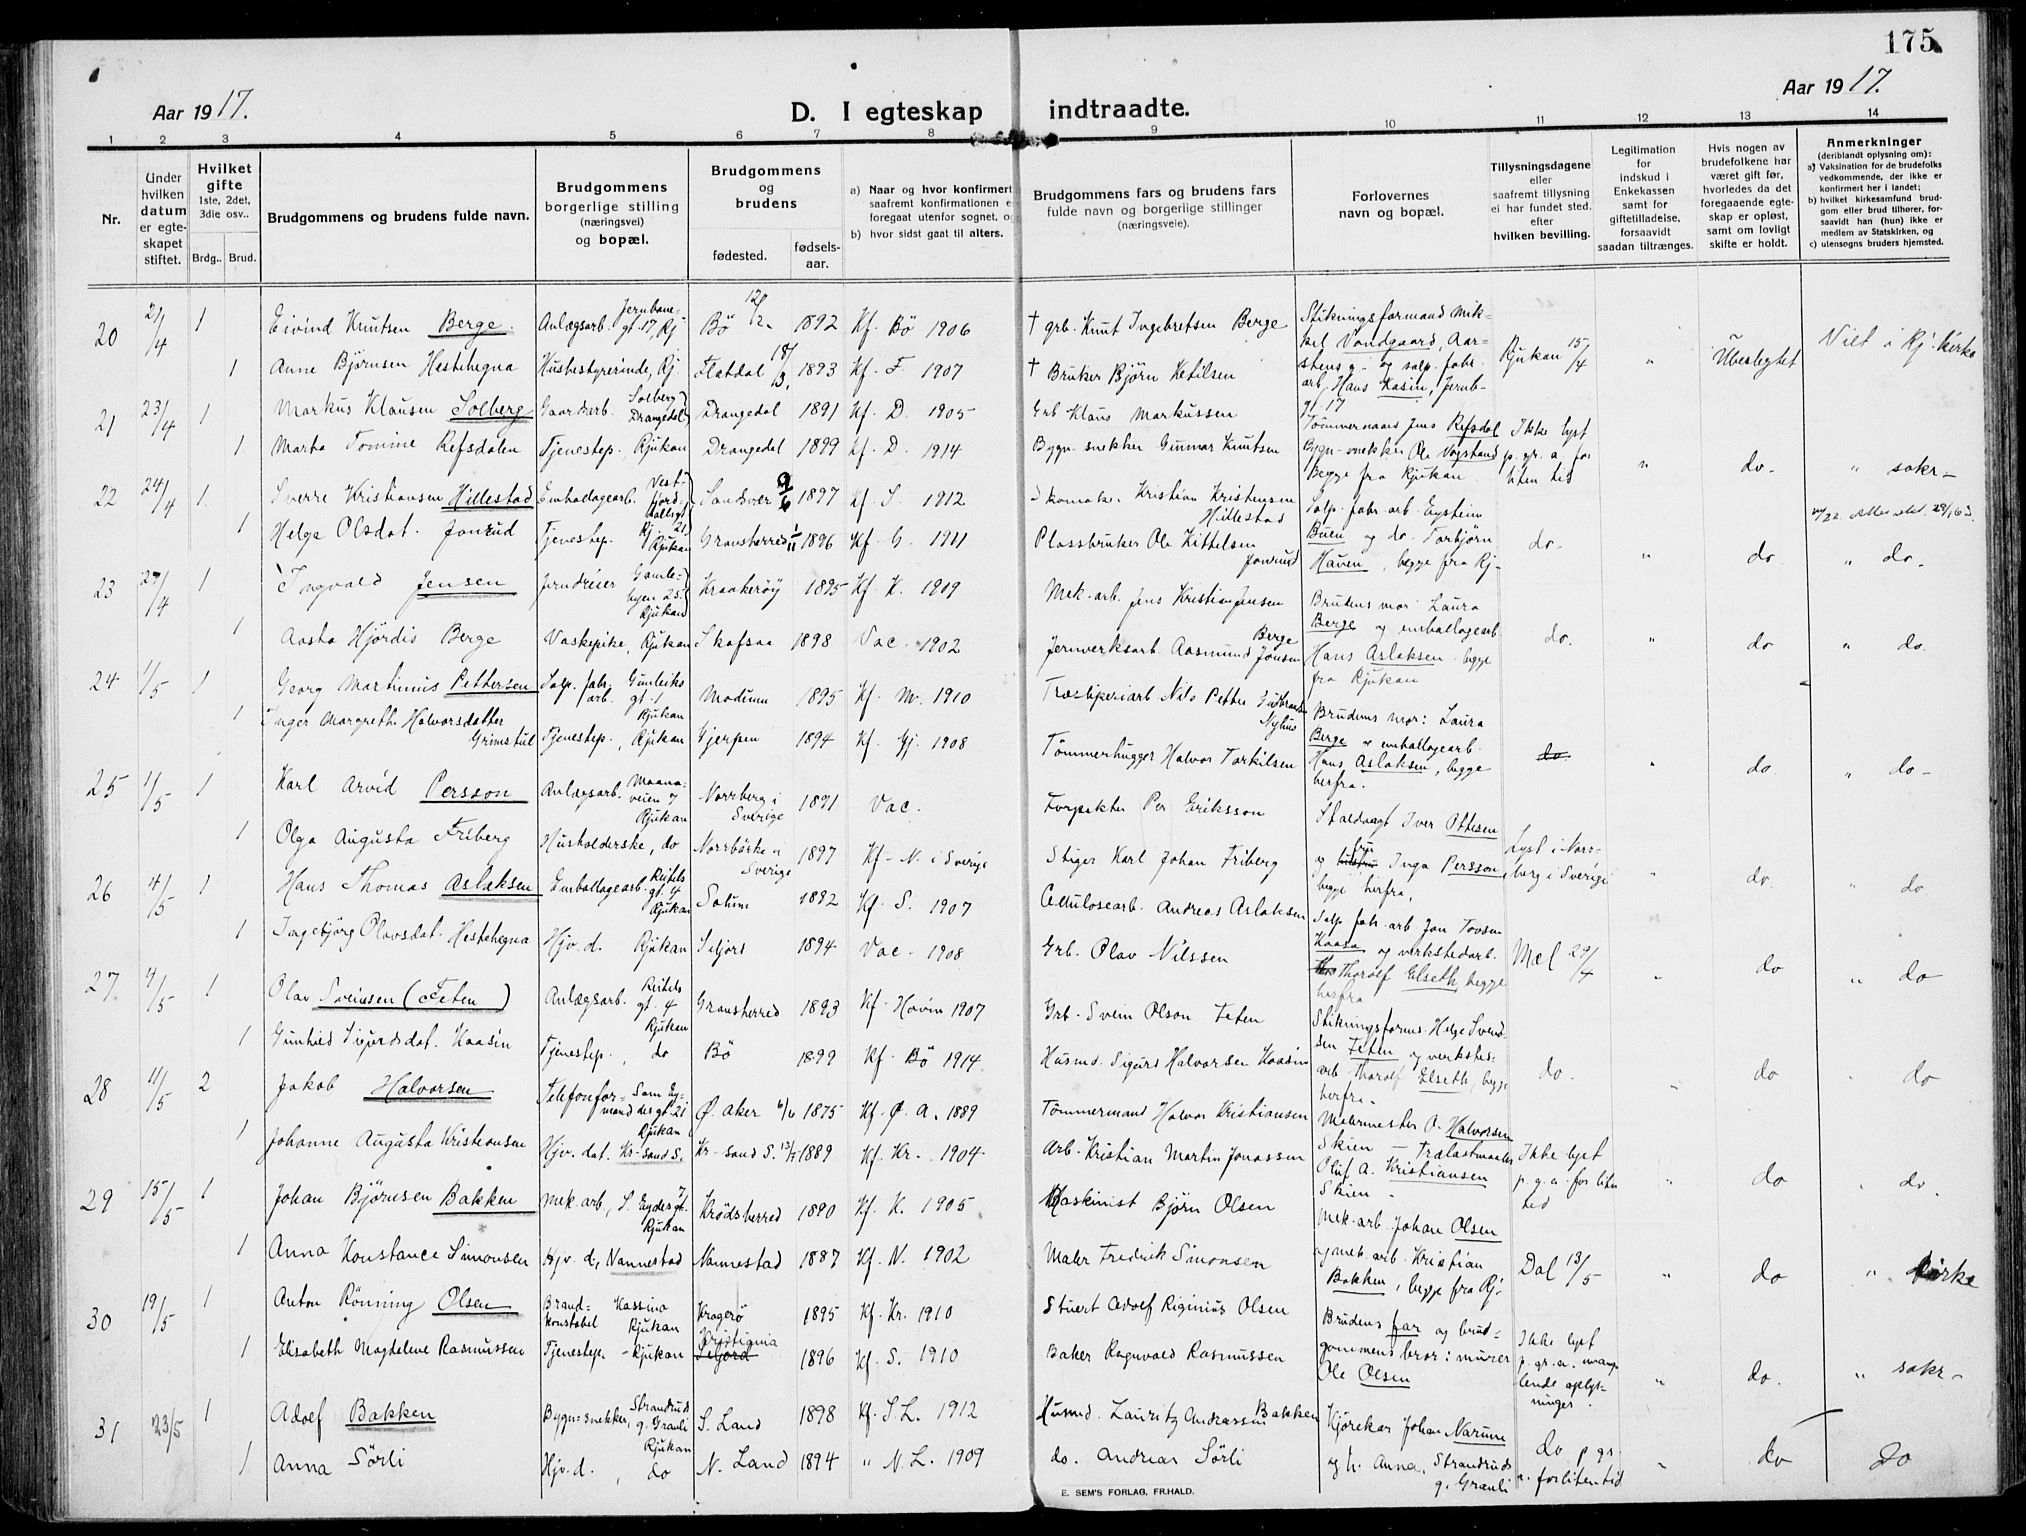 175.
Aar 1917.
Aar 1917.
D. I egteskap indtraadte.
1 2 3 4 5 6 7 8 9 10 11 12 13 14
Nr.
Under hvilken datum er egteskapet stiftet.
Hvilket gifte
1ste, 2det, 3die osv..
Brdg.. Brud.
Brudgommens og brudens fulde navn.
Brudgommens borgerlige stilling (næringsvei) og bopæl.
Brudgommens og brudens
fødested.
fødsels-aar.
a) Naar og hvor konfirmert
saafremt konfirmationen e
foregaat utenfor sognet, og
b) hvor sidst gaat til alters.
Brudgommens fars og brudens fars
fulde navn og borgerlige stillinger
(næringsveie).
Forlovernes
navn og bopæl.
Tillysningsdagene
eller
saafremt tillysning
ei har fundet sted,
efter
hvilken bevilling.
Legitimation
for
indskud i
Enkekassen
samt for
giftetilladelse,
forsaavidt
saadan tiltrænges.
Hvis nogen av
brudefolkene har
været gift før,
hvorledes da det
foregaaende egte-
skap er opløst,
samt om lovligt
skifte er holdt.
Anmerkninger
(deriblandt oplysning om):
a) Vaksination for de brudefolks
vedkommende, der ikke er
konfirmert her i landet;
b) hvilket kirkesamfund brud-
gom eller brud tilhører, for-
saavidt han (hun) ikke er
medlem av Statskirken, og
c) utensogns bruders hjemsted.
20 21/4 1 Eivind Knutsen Berge. Anlægsarb. Jernbane-gt. 17, Rj Bö 12/12 1892 Kf. Bö 1906 † grb. Knut Ingebretsen Berge Stikningsformand Mik-
kel Vandgaard, Aar-
stens g. og salp. fabr.
arb. Hans Kasin, Jernb-
gt 17 Rjukan 15/4 " Ubeslegtet Viet i Rj. kirke
1 Anne Björnsen Hestehegna Husbestyrerinde, Rj. Flatdal 18/3 1893 Kf. F. 1907 † Bruker Björn Ketilsen
21 23/4 1 Markus Klausen Solberg Gaardsarb. Solberg Drangedal Drangedal 1891 Kf. D. 1905 Grb Klaus Markussen Tömmermand Jens Refsdal
Bygn-snekker Ole Vogstand
Begge fra Rjukan Ikke lyst
p. gr. a for
liten tid " do. " sakr-
1 Marta Tomine Refsdalen Tjenestep. Rjukan Drangedal 1899 Kf. D. 1914 Bygn-snekker Gunnar Knutsen
22 24/4 1. Sverre Kristiansen Hillestad Emballagearb. Vestfjord- Rj Sandsver 9/6 1897 Kf. S 1912 Skomaker Kristian Kristensen Hillestad Salp. fabr. arb. Eystein
Buen og do. Torbjörn
Haven, begge fra Rj- do. " do " do.
1 Helge Olsdat. Jonrud Tjenestep. Rjukan Gransherred 1/11 1896 Kf. G. 1911 Plassbruker Ole Kittelsen Jonsrud
23 27/4 1 Ingvald Jensen Jerndreier Gamle-byen 25 Rjukan Kraakeröy 1895 Kf. K. 1909 Mek-arb. Jens Kristian Jensen Brudens mor Laura
Berge og emballagearb.
Hans Aslaksen begge
fra Rjukan do. " do " do.
1 Aasta Hjördis Berge Vaskepike, Rjukan Skafsaa 1898 Vac. 1902 Jernverksarb Aasmund Jonsen Berge
24 1/5 1 Georg Martinius Pettersen Salp. fabr. arb. Gunleiks gt. 1 Rjukan Modum 1895 Kf. M. 1910 Træsliperiarb Nils Petter Gudbrandsen Nyhus Brudens mor: Laura
Berge og emballagearb.
Hans Aslaksen, begge
herfra. do. " do " do-
1 Inger Margrethe Halvorsdatter Grimstul Tjenestep., Rjukan Gjerpen 1894 Kf. Gj. 1908 Tömmerhugger Halvor Torkilsen
25 1/5 1 Karl Arvid Persson Anlægsarb. Maana-veien 7 Rjukan Norrberg i Sverige 1891 Vac. Forpakter Per Eriksson Staldvagt Iver Ottesen
og fru Inga Persson,
begge herfra. Lyst i Norr-
berg i Sverige " do. " do
1 Olga Augusta Friberg Husholderske, do Norrbärke Sverige 1897 Kf- N. i Sverige Stiger Karl Johan Friberg
26 4/5 1 Hans Thomas Aslaksen Emballagearb. gt. 4 Rjukan Solum 1892 Kf. S. 1907 Cellulosearb. Andreas Aslaksen Salp. fabr. arb Jon Tovsen
Kaasa og verkstedarb.
Thorolf Elseth, begge
herfra Mæl 29/4 " do " do
1 Ingebjörg Olavsdat. Hestehegna Hjv. d. Rjukan Seljord 1894 Vac. 1908 Grb. Olav Nilssen
27 4/5 1 Olav Sveinsen (Feten) Anlægsarb. gt. 4 Rjukan Gransherred 1893 Kf. Hovin 1907 Grb. Svein Olson Feten Stikningsform. Helge Svend-
sen Feten og verksteds-
arb Thorolf Elseth, begge
herfra. do. " do " do
1 Gunhild Sigurdsdat. Kaasin Tjenestep., do Bö 1899 Kf. Bö 1914 Husmd. Sigurd Halvorsen Kaasin
28 11/5 2 Jakob Halvorsen Telefonfor-mand Sam Ey-des gt. 21 Rjukan Ø. Aker 6/6 1875 Kf. Ø. A. 1889 Tömmermand Halvor Kristiansen Malermester O. Halvorsen
Skien - Trælastmaaler
Oluf A. Kristiansen
Skien - Ikke lyst
p. g. a. for liten
tid " do " do.
1 Johanne Augusta Kristiansen Hjv. dat. Kr-sand S. Kr-sand S. 1889 Kf. Kr. 1904 Arb. Kristian Martin Jonassen
29 15/5 1 Johan Björnsen Bakken Mek. arb, S. Eydes gt. 7 Rjukan Krödsherred 1890 Kf. K. 1905 Maskinist Björn Olsen Mek-arb. Johan Olsen
og mek. arb. Kristian
Bakken, begge fra Rj. Dal 13/5 " do " kirke
1 Anna Konstance Simonsen Hjv. d., Nannestad Nannestad 1887 Kf. N. 1902 Maler Fredrik Simonsen
30 19/5 1 Anton Rönning Olsen Brand-konstabel Kassino Rjukan Kragerö 1895 Kf. Kr. 1910 Stuert Adolf Riginius Olsen Brudens far og brud-
gommens bror: murer
Ole Olsen Ikke lyst
p. gr. a. mang-
lende oplys-
ninger. " do. " sakr-
1 Elisabeth Magdelene Rasmussen Tjenestep. - Rjukan Kristiania Seljord 1896 Kf. S. 1910 Baker Ragnvald Rasmussen
31 23/5 1 Adolf Bakken Bygn-snekker, Strandrud g. Granli Rjukan S. Land 1898 Kf. S.L. 1912 Husmd. Lauritz Andrassen Bakken Kjörekar Johan Narum
og h. Anna, Strandruds
g. Granli do p gr.
a. for liten tid " do do
1 Anna Sörli Hjv. d., do N. Land 1894 " N. L. 1909 do. Andreas Sörli
E. SEM'S FORLAG, FR.HALD.